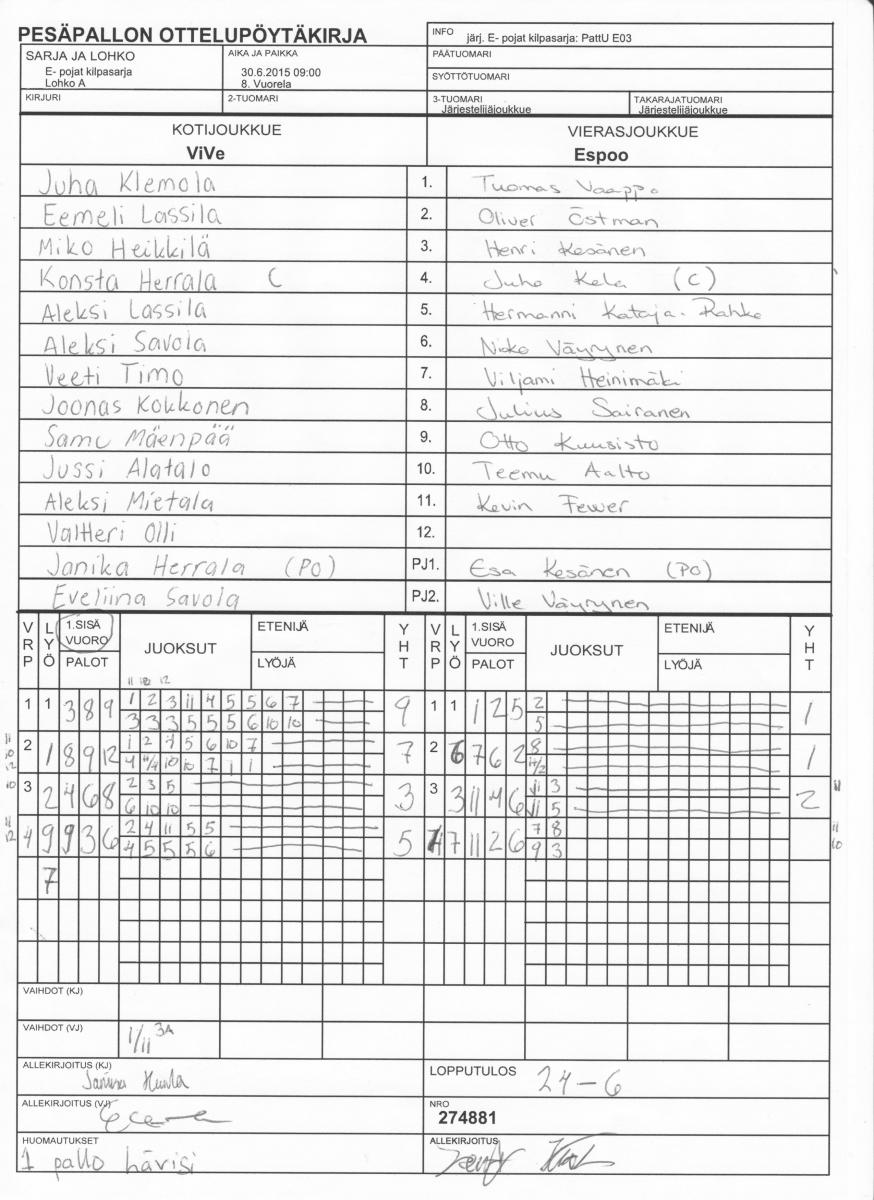 PESÄPALLON OTTELUPÖYTÄKIRJA
INFO järj. E- pojat kilpasarja: PattU E03
SARJA JA LOHKO
E- pojat kilpasarja
Lohko A
AIKA JA PAIKKA
30.6.2015 09:00
8. Vuorela
PÄÄTUOMARI
SYÖTTÖTUOMARI
KIRJURI
2-TUOMARI
3-TUOMARI
Järjestelijäjoukkue
TAKARAJATUOMARI
Järjestelijäjoukkue
KOTIJOUKKUE
ViVe
VIERASJOUKKUE
Espoo
Juha Klemola 1. Tuomas Vaappo
Eemeli Lassila 2. Oliver Östman
Miko Heikkilä 3. Henri Kesänen
Konsta Herrala C 4. Juho Kela (C)
Aleksi Lassila 5. Hermanni Kataja-Rahko
Aleksi Savola 6. Niko Väyrynen
Veeti Timo 7. Viljami Heinimäki
Joonas Kokkonen 8. Julius Sairanen
Samu Mäenpää 9. Otto Kuusisto
Jussi Alatalo 10. Teemu Aalto
Aleksi Mietala 11. Kevin Fewer
Valtteri Olli 12.
Janika Herrala (PO) PJ1. Esa Kesänen (PO)
Eveliina Savola PJ2. Ville Väyrynen
VRP LYÖ 1.SISÄ VUORO PALOT JUOKSUT ETENIJÄ LYÖJÄ YHT VRP LYÖ 1.SISÄ VUORO PALOT JUOKSUT ETENIJÄ LYÖJÄ YHT
11 10 12
1 1 3 8 9 1 2 3 11 4 5 5 6 7 9 1 1 1 2 5 2 1
3 3 3 5 5 5 6 10 10 5
2 1 8 9 12 1 2 4 5 6 10 7 7 2 6 7 6 2 8 1
4 4/4 10 10 7 1 1 11/2
3 2 4 6 8 2 3 5 3 3 3 11 4 6 11 3 2
6 10 10 11 5
4 9 9 3 6 2 4 11 5 5 5 4 7 11 2 6 7 8
4 5 5 5 6 9 3
7
VAIHDOT (KJ)
VAIHDOT (VJ) 1/11 3A
ALLEKIRJOITUS (KJ)
LOPPUTULOS 24-6
ALLEKIRJOITUS (VJ)
NRO
274881
HUOMAUTUKSET
1 pallo hävisi
ALLEKIRJOITUS